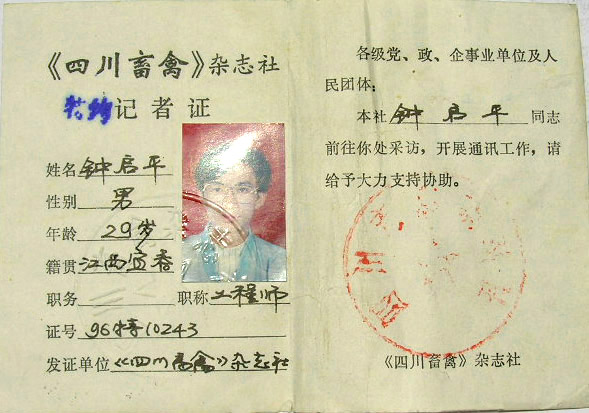 《四川畜禽》杂志社
特约记者证
姓名 钟启平
性别 男
年龄 29岁
籍贯 江西宜春
职务 职称 工程师
证号 96特10243
发证单位《四川畜禽》杂志社
各级党、政、企事业单位及人
民团体：
本社 钟启平 同志
前往你处采访，开展通讯工作，请
给予大力支持协助。
《四川畜禽》杂志社